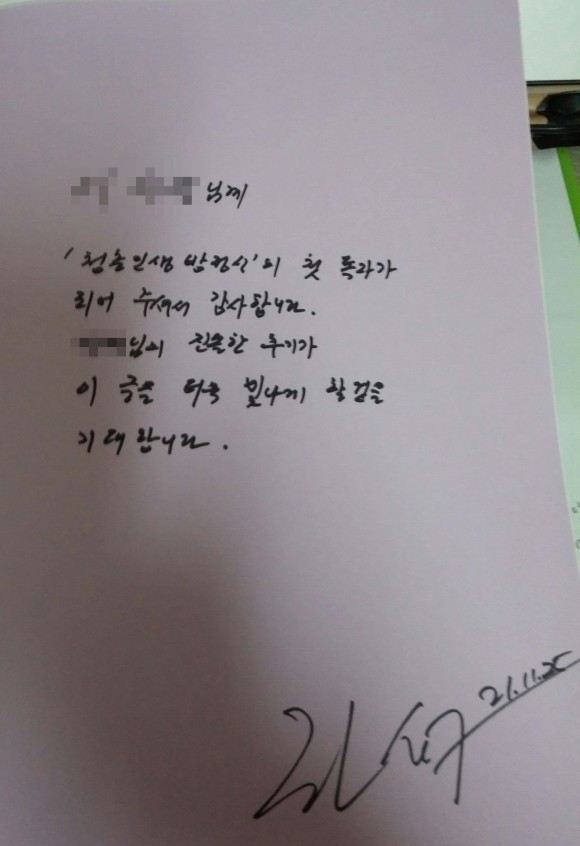 님께
'청송인생 밥정식'의 첫 독자가
되어 주셔서 감사합니다.
님의 진솔한 후기가
이 글을 더욱 빛나게 할 것을
기대합니다.
21.11.25